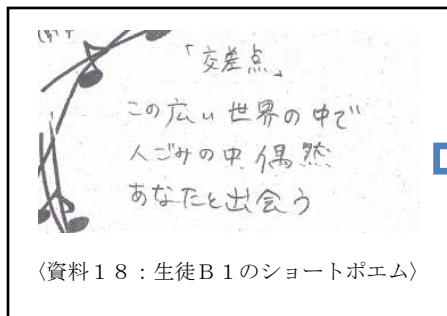 「交差点」
この広い世界の中で
人ごみの中 偶然
あなたと出会う
〈資料１８：生徒Ｂ１のショートポエム〉